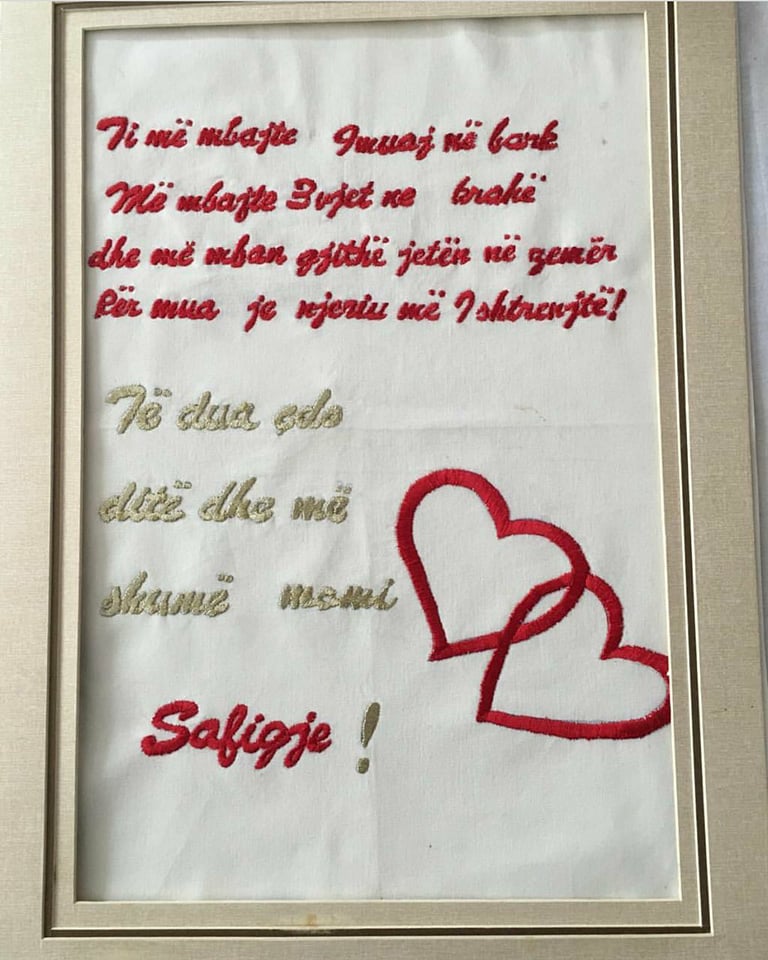 Ti më mbajte 9muaj në bark
Më mbajte 3vjet ne krahë
dhe më mban gjithë jetën në zemër
Për mua je njeriu më I shtrenjtë!
Të dua çdo
ditë dhe më
shumë momi
Safigje !